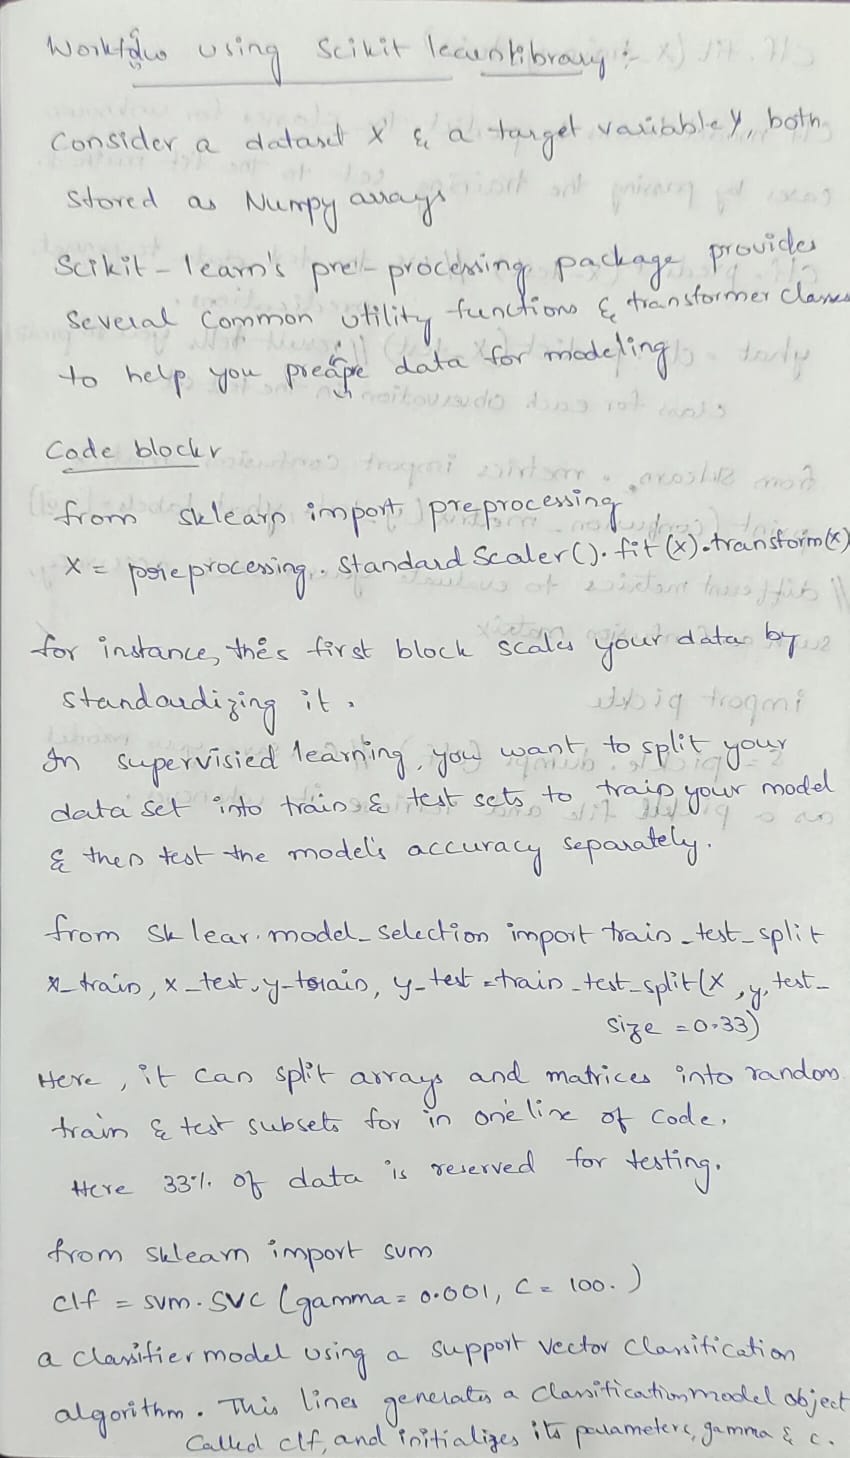 Workflow using Scikit learn library :-
Consider a dataset X & a target variable y, both
stored as Numpy arrays
Scikit - learn's pre - processing package provides
several common utility functions & transformer classes
to help you preapre data for modeling
Code blocks
from sklearn import preprocessing
X = preprocessing . Standard Scaler(). fit (x) . transform(x)
for instance, this first block scales your data by
standardizing it .
In supervisied learning, you want to split your
data set into train & test sets to train your model
& then test the model's accuracy separately.
from sk lear. model_selection import train_test_split
x_train, x_test, y-train, y_test = train_test_split(X, y, test_
size = 0.33)
Here , it can split arrays and matrices into random
train & test subsets for in one line of code.
Here 33% of data is reserved for testing.
from sklearn import svm
clf = svm. SVC (gamma = 0.001, C = 100. )
a classifier model using a support vector classification
algorithm. This lines generates a classification model object
called clf, and initializes its parameters, gamma & c.